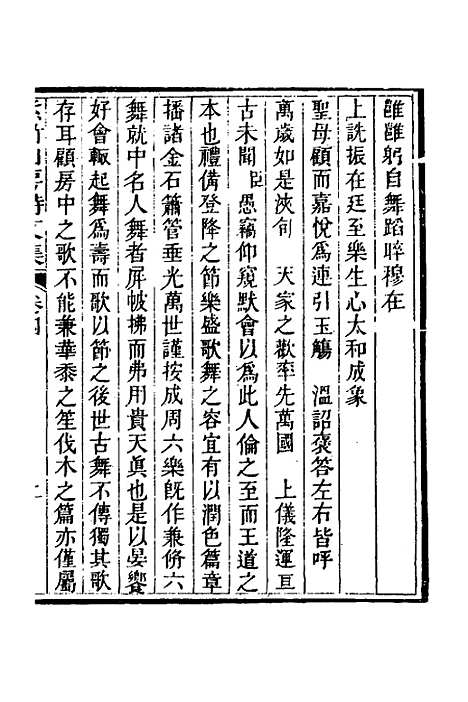 雝雝躬自舞蹈睟穆在
上詵振在廷至樂生心太和成象
聖母顧而嘉悅爲連引玉觴　溫詔褒答左右皆呼
萬歲如是浹旬　天家之歡率先萬國　上儀隆運亘
古未聞　臣　愚竊仰窺默會以爲此人倫之至而王道之
本也禮備登降之節樂盛歌舞之容宜有以潤色篇章
播諸金石簫管垂光萬世謹按成周六樂旣作兼脩六
舞就中名人舞者屏帗拂而弗用貴天眞也是以晏饗
好會輙起舞爲壽而歌以節之後世古舞不傳獨其歌
存耳顧房中之歌不能兼華黍之笙伐木之篇亦僅屬
紫竹山房詩文集　卷四